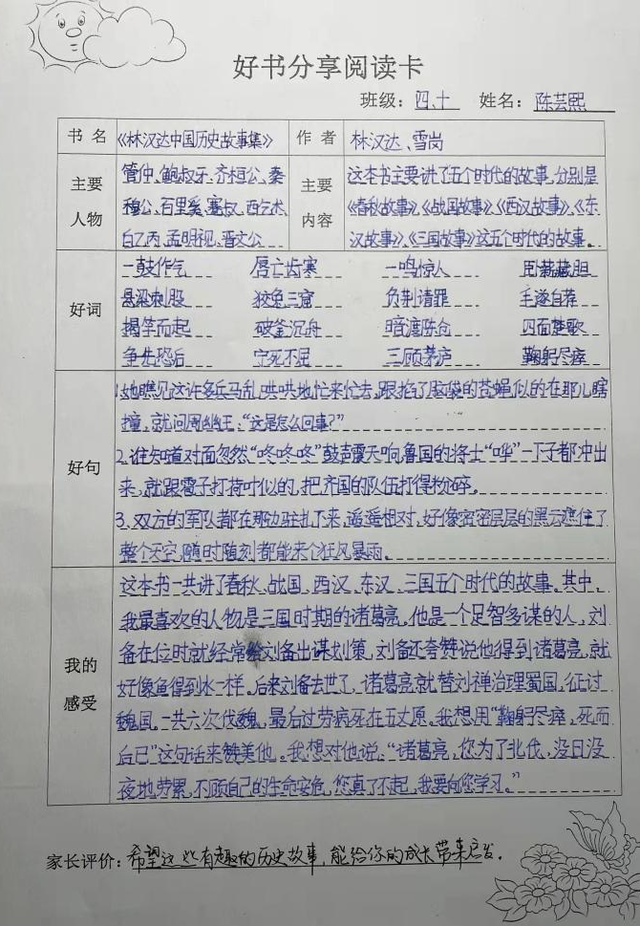 好书分享阅读卡
班级：四、十 姓名：陈芸熙
书名 《林汉达中国历史故事集》 作者 林汉达、雪岗
主要人物 管仲、鲍叔牙、齐桓公、秦
穆公、百里奚、蹇叔、西乞术、
白乙丙、孟明视、晋文公
主要内容 这本书主要讲了五个时代的故事，分别是
《春秋故事》、《战国故事》、《西汉故事》、《东
汉故事》、《三国故事》这五个时代的故事。
好词 一鼓作气 唇亡齿寒 一鸣惊人 卧薪藏胆
悬梁刺股 狡兔三窟 负荆请罪 毛遂自荐
揭竿而起 破釜沉舟 暗渡陈仓 四面楚歌
争先恐后 宁死不屈 三顾茅庐 鞠躬尽瘁
好句 1.她瞧见这许多兵马乱哄哄地忙来忙去，跟掐了脑袋的苍蝇似的在那儿瞎
撞，就问周幽王：“这是怎么回事？”
2.谁知道对面忽然“咚咚咚”鼓声震天响，鲁国的将士“哗”一下子都冲出
来，就跟雹子打荷叶似的，把齐国的队伍打得粉碎。
3.双方的军队都在那边驻扎下来，遥遥相对，好像密密层层的黑云遮住了
整个天空，随时随刻都能来个狂风暴雨。
我的感受 这本书一共讲了春秋、战国、西汉、东汉、三国五个时代的故事。其中，
我最喜欢的人物是三国时期的诸葛亮，他是一个足智多谋的人，刘
备在位时就经常给刘备出谋划策，刘备还夸赞说他得到诸葛亮，就
好像鱼得到水一样。后来刘备去世了，诸葛亮就替刘禅治理蜀国，征讨
魏国，一共六次伐魏，最后过劳病死在五丈原。我想用“鞠躬尽瘁，死而
后已”这句话来赞美他。我想对他说：“诸葛亮，您为了北伐，没日没
夜地劳累，不顾自己的生命安危，您真了不起，我要向您学习。”
家长评价：希望这些有趣的历史故事，能给你的成长带来启发。